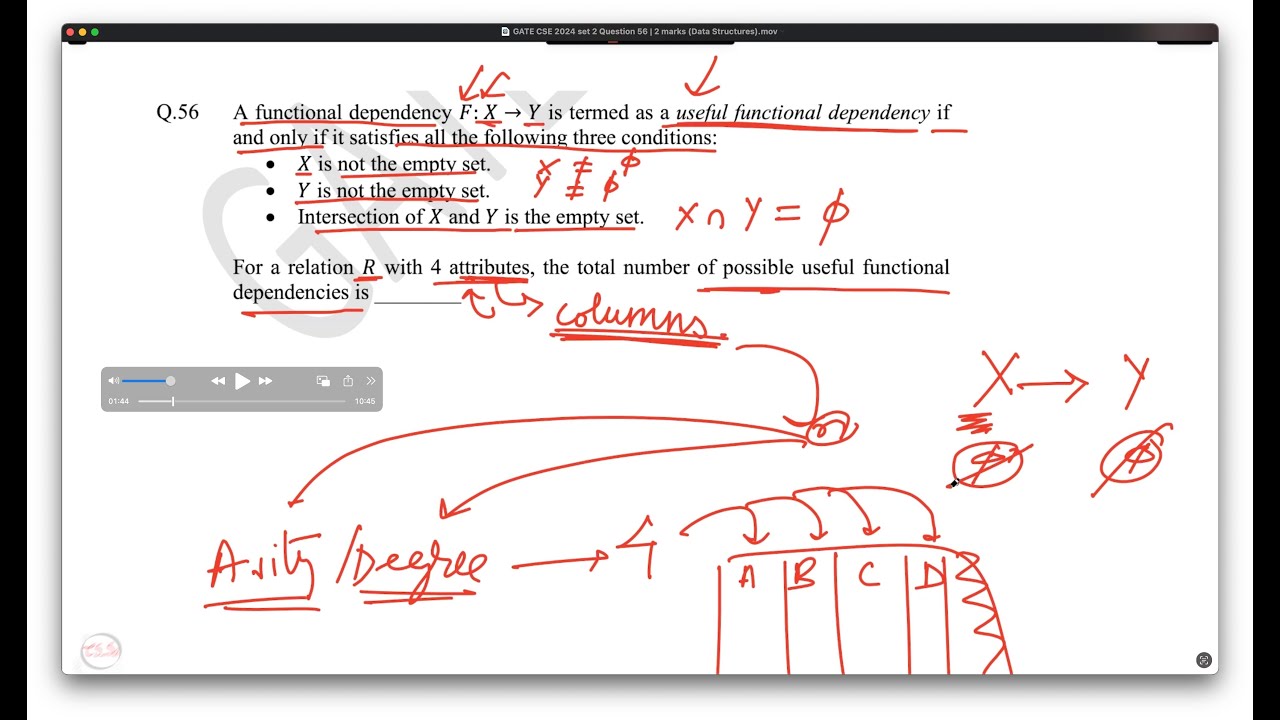 GATE CSE 2024 set 2 Question 56 | 2 marks (Data Structures).mov
Q.56 A functional dependency F: X → Y is termed as a useful functional dependency if
and only if it satisfies all the following three conditions:
• X is not the empty set.
• Y is not the empty set.
• Intersection of X and Y is the empty set.
X ≠ ϕ
Y ≠ ϕ
X ∩ Y = ϕ
For a relation R with 4 attributes, the total number of possible useful functional
dependencies is ________
columns
X → Y
ϕ ϕ
01:44 10:45
Arity/Degree → 4
A B C D